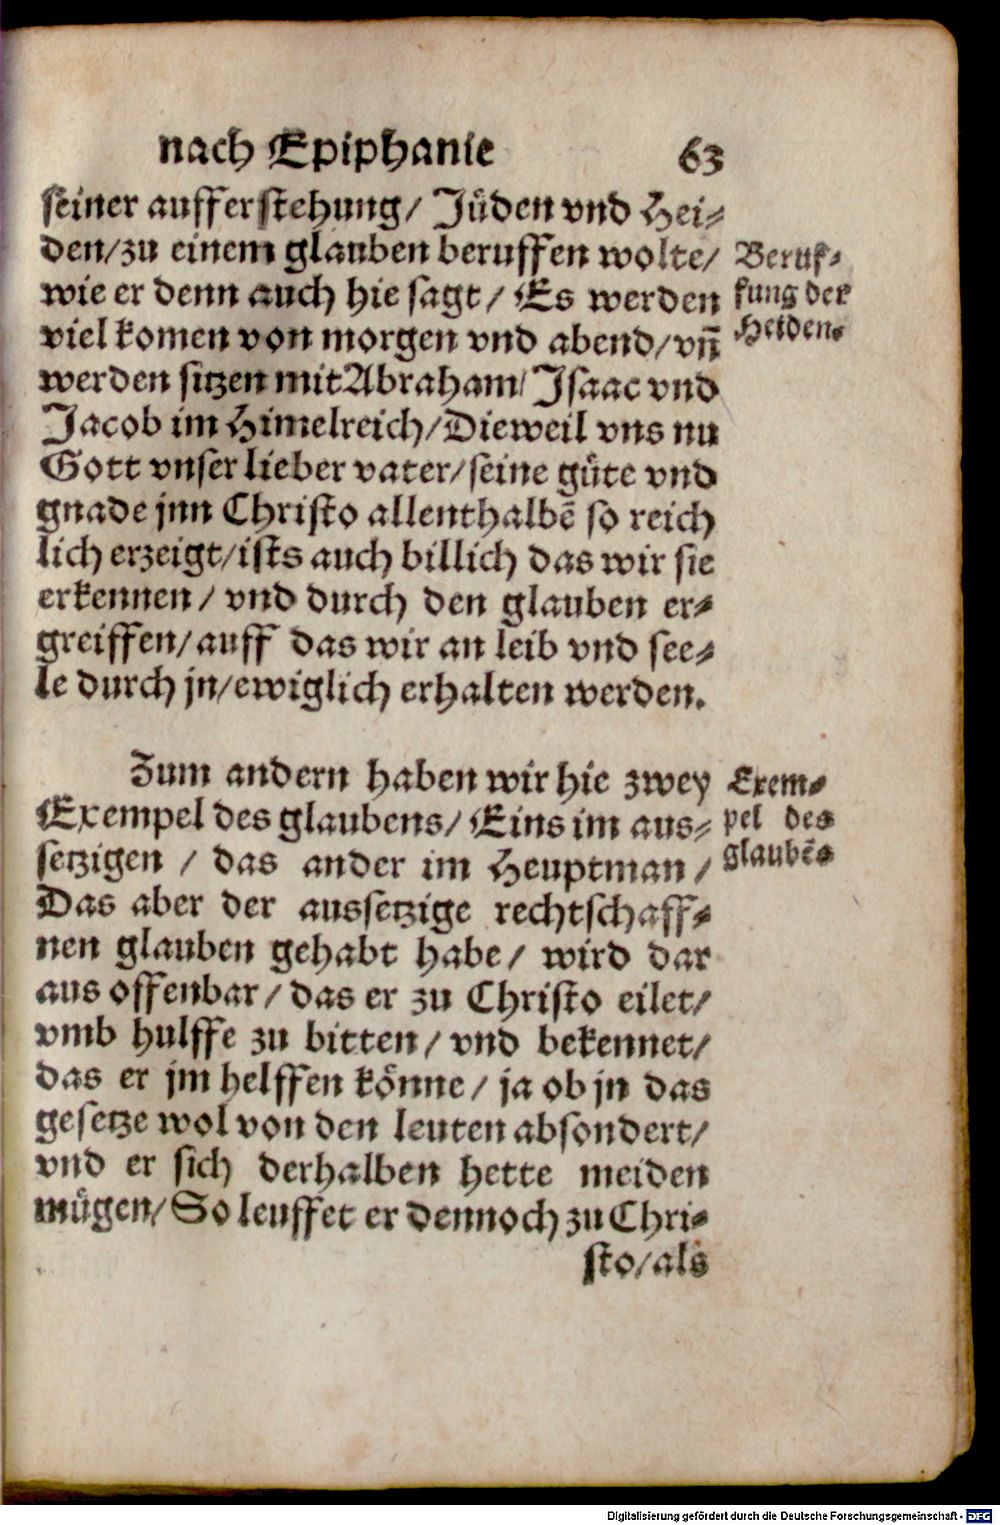 nach Epiphanie 63
seiner aufferstehung/ Jüden vnd Hei⸗
den/zu einem glauben beruffen wolte/
wie er denn auch hie sagt/ Es werden
viel komen von morgen vnd abend/vñ
werden sitzen mit Abraham/ Jsaac vnd
Jacob im Himelreich/Dieweil vns nu
Gott vnser lieber vater/seine güte vnd
gnade jnn Christo allenthalbē so reich
lich erzeigt/ists auch billich das wir sie
erkennen/ vnd durch den glauben er⸗
greiffen/auff das wir an leib vnd see⸗
le durch jn/ewiglich erhalten werden.
Beruf⸗
fung der
Heiden.
Zum andern haben wir hie zwey
Exempel des glaubens/ Eins im aus⸗
setzigen / das ander im Heuptman /
Das aber der aussetzige rechtschaff⸗
nen glauben gehabt habe/ wird dar
aus offenbar/ das er zu Christo eilet/
vmb hulffe zu bitten/ vnd bekennet/
das er jm helffen könne/ ja ob jn das
gesetze wol von den leuten absondert/
vnd er sich derhalben hette meiden
mügen/ So leuffet er dennoch zu Chri⸗
sto/als
Exem⸗
pel des
glaubēs
Digitalisierung gefördert durch die Deutsche Forschungsgemeinschaft - DFG